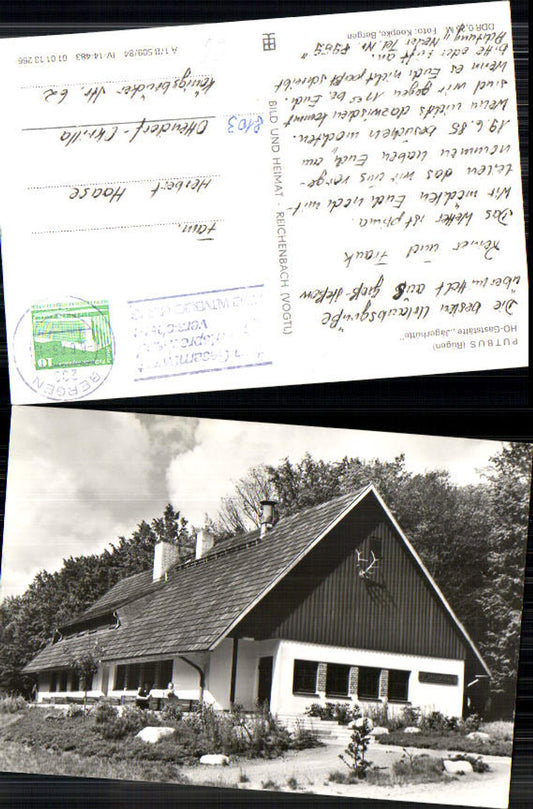 PUTBUS (Rügen)
HO-Gaststätte „Jägerhütte"
Die besten Urlaubsgrüße
übermittelt aus
Reiner und Traudl
Das Wetter ist prima.
Wir möchten Euch noch mit-
teilen das wir uns vorge-
nommen haben Euch am
19.6.85 besuchen möchten.
Wenn nichts dazwischen kommt
sind wir gegen 11 00 bei Euch.
Wenn es Euch nicht paßt schreibt
bitte oder ruft an.
Achtung!! Neue Tel Nr.
DDR Foto: Koepke, Bergen
BILD UND HEIMAT · REICHENBACH (VOGTL)
10
BERGEN
Fam.
Herbert Haase
Ottendorf-Okrilla
8103
Königsbrücker Str. 62
A 1/B 509/84 IV-14-483 01 01 13 266